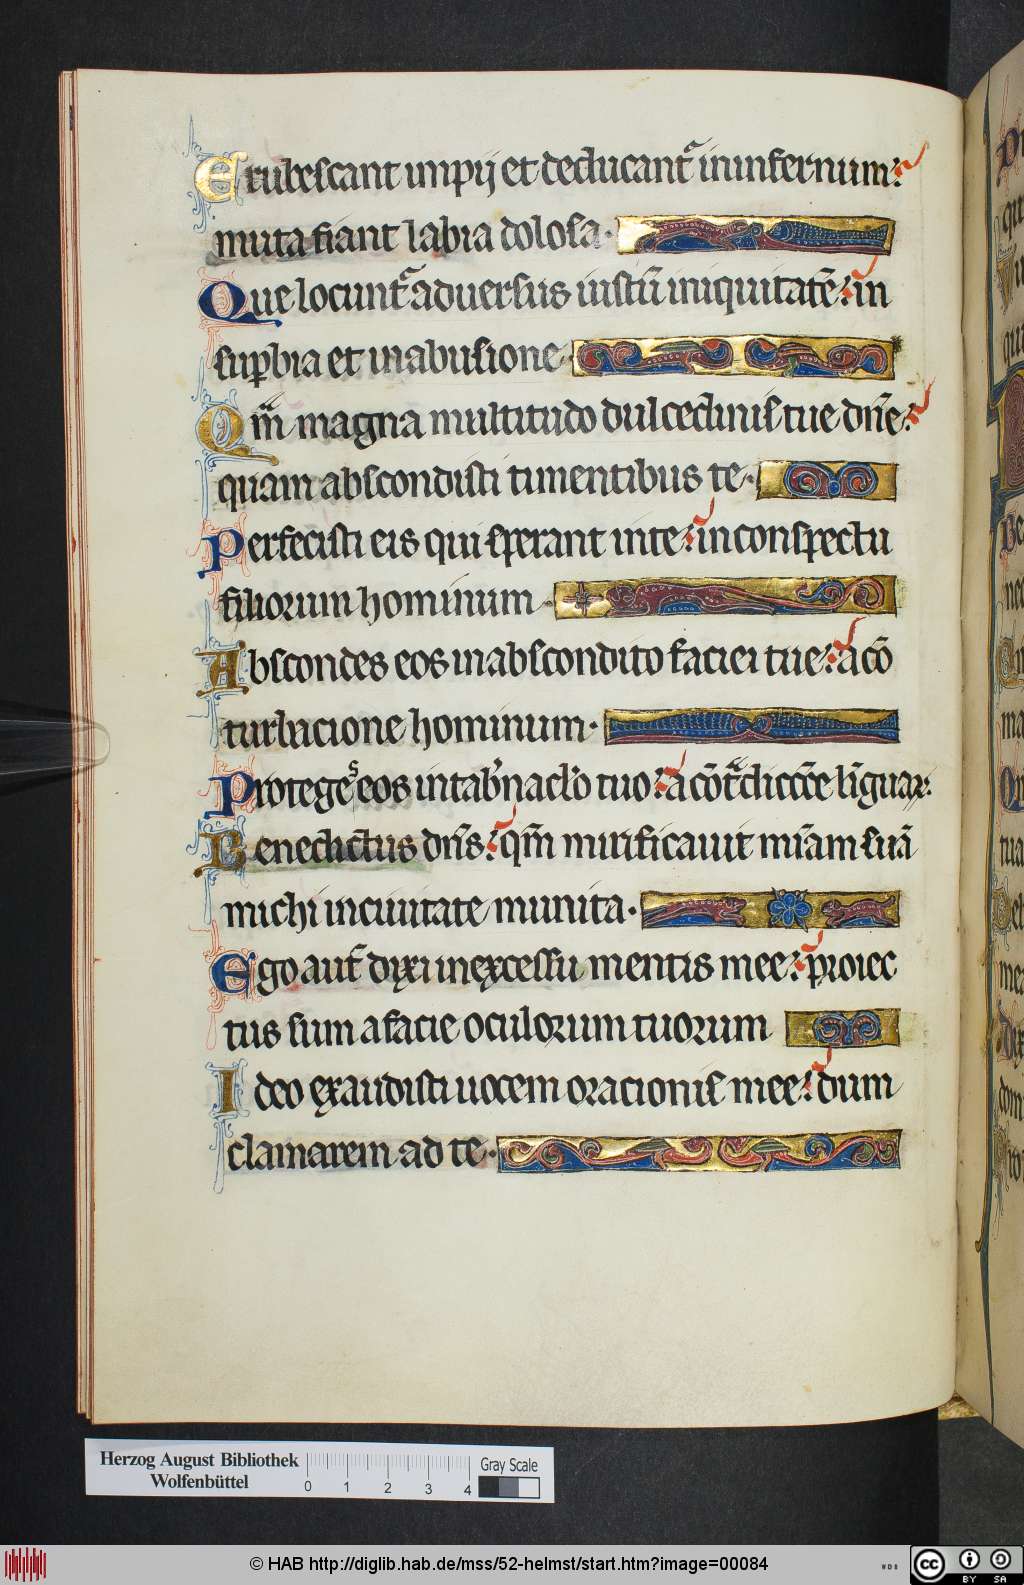 Erubescant impij et deducant᷑ in infernum:
muta fiant labia dolosa.
Que locunt᷑ aduersus iustū iniquitatē: in
suꝑbia et in abusione
Qm̄ magna multitudo dulcedinis tue dn̄e:
quam abscondisti timentibus te.
Perfecisti eis qui sperant in te: in conspectu
filiorum hominum.
Abscondes eos in abscondito faciei tue: a cō
turbacione hominum.
Proteges eos in tab̾naclo tuo: a cōt᷑diccōe linguaꝝ:
Benedictus dn̄s: qm̄ mirificauit mīam suā
michi in ciuitate munita.
Ego aut̄ dixi in excessu mentis mee: proiec
tus sum a facie oculorum tuorum
Ideo exaudisti uocem oracionis mee: dum
clamarem ad te.
Herzog August Bibliothek
Wolfenbüttel
0 1 2 3 4
Gray Scale
© HAB http://diglib.hab.de/mss/52-helmst/start.htm?image=00084
WDB
cc BY SA